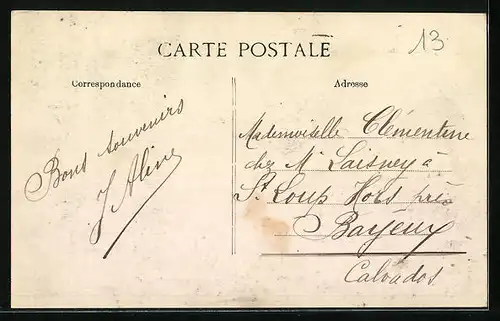 13
CARTE POSTALE
Correspondance
Adresse
Bons souvenirs
J Aline
Mademoiselle Clémentine
chez Mr Laisney à
St Loup Hors près
Bayeux
Calvados